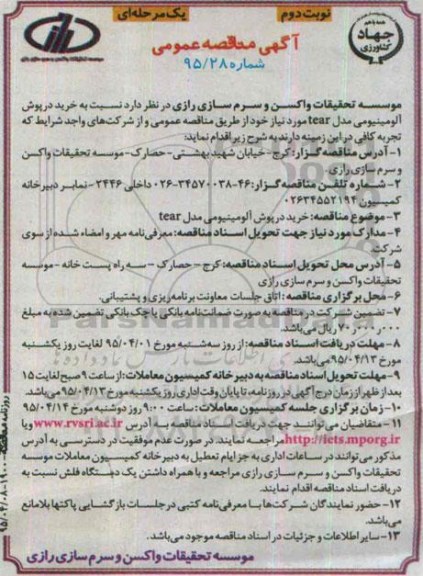 نوبت دوم
یک مرحله‌ای
جهاد
کشاورزی
آگهی مناقصه عمومی
شماره ۹۵/۲۸
موسسه تحقیقات واکسن و سرم سازی رازی در نظر دارد نسبت به خرید درپوش
آلومینیومی مدل tear مورد نیاز خود از طریق مناقصه عمومی و از شرکت‌های واجد شرایط که
تجربه کافی در این زمینه دارند به شرح زیر اقدام نماید:
۱- آدرس مناقصه گزار: کرج- خیابان شهید بهشتی- حصارک- موسسه تحقیقات واکسن
و سرم سازی رازی
۲- شماره تلفن مناقصه گزار: ۴۶-۳۴۵۷۰۰۳۸-۰۲۶ داخلی ۲۴۴۶ -نمابر دبیرخانه
کمیسیون ۰۲۶۳۴۵۵۲۱۹۴
۳- موضوع مناقصه: خرید درپوش آلومینیومی مدل tear
۴- مدارک مورد نیاز جهت تحویل اسناد مناقصه: معرفی‌نامه مهر و امضاء شده از سوی
شرکت
۵- آدرس محل تحویل اسناد مناقصه: کرج - حصارک - سه راه پست خانه -موسسه
تحقیقات واکسن و سرم سازی رازی
۶- محل برگزاری مناقصه: اتاق جلسات معاونت برنامه‌ریزی و پشتیبانی.
۷- تضمین شرکت در مناقصه به صورت ضمانت‌نامه بانکی یا چک بانکی تضمین شده به مبلغ
۷۰/۰۰۰/۰۰۰ ریال می‌باشد.
۸- مهلت دریافت اسناد مناقصه: از روز سه‌شنبه مورخ ۹۵/۰۴/۰۱ لغایت روز یکشنبه
مورخ ۹۵/۰۴/۱۳ می‌باشد.
۹- مهلت تحویل اسناد مناقصه به دبیرخانه کمیسیون معاملات: از ساعت ۹ صبح لغایت ۱۵
بعد از ظهر از زمان درج آگهی در روزنامه، تا پایان وقت اداری روز یکشنبه مورخ ۹۵/۰۴/۱۳ می‌باشد.
۱۰- زمان برگزاری جلسه کمیسیون معاملات: ساعت ۹:۰۰ روز دوشنبه مورخ ۹۵/۰۴/۱۴
۱۱- متقاضیان می‌توانند جهت دریافت اسناد مناقصه به آدرس www.rvsri.ac.ir و یا
http://iets.mporg.ir مراجعه نمایند. در صورت عدم موفقیت در دسترسی به آدرس
مذکور می‌توانند در ساعات اداری به جز ایام تعطیل به دبیرخانه کمیسیون معاملات موسسه
تحقیقات واکسن و سرم سازی رازی مراجعه و با همراه داشتن یک دستگاه فلش نسبت به
دریافت اسناد مناقصه اقدام نمایند.
۱۲- حضور نمایندگان شرکت‌ها با معرفی‌نامه کتبی در جلسات بازگشایی پاکتها بلامانع
می‌باشد.
۱۳- سایر اطلاعات و جزئیات در اسناد مناقصه موجود می‌باشد.
موسسه تحقیقات واکسن و سرم سازی رازی